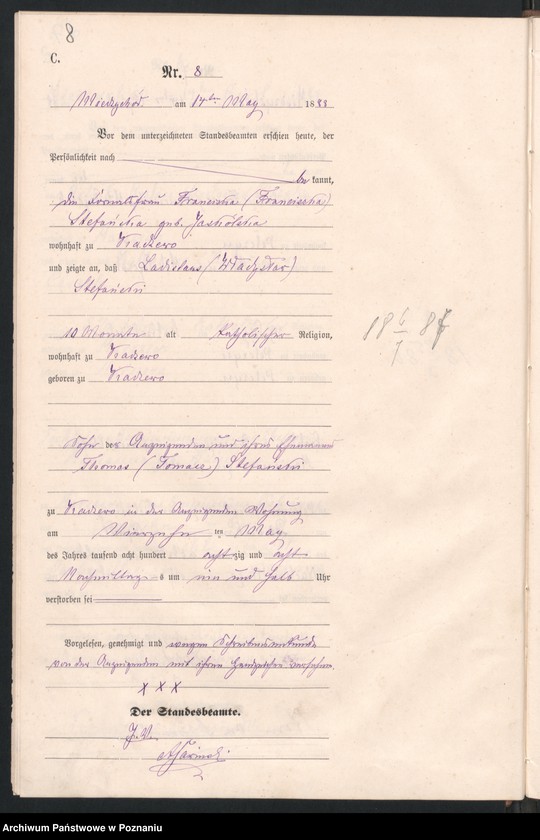 8
C.
Nr. 8
am 14ten May 1888
Vor dem unterzeichneten Standesbeamten erschien heute, der
Persönlichkeit nach
be kannt,
die Franciska (Franciszka)
Stefańska geb. Jaskólska
wohnhaft zu
und zeigte an, daß Ladislaus (Władysław)
Stefański
10 Monate alt katholischer Religion,
wohnhaft zu
geboren zu
Sohn der Anzeigenden und ihres Ehemannes
Thomas (Tomasz) Stefański
zu in der Anzeigenden Wohnung
am Vierzehn ten May
des Jahres tausend acht hundert achtzig und acht
Nachmittags um ein und halb Uhr
verstorben sei
Vorgelesen, genehmigt und wegen Schreibensunkunde
von der Anzeigenden mit ihren Handzeichen versehen.
X X X
Der Standesbeamte.
J. V.
Archiwum Państwowe w Poznaniu